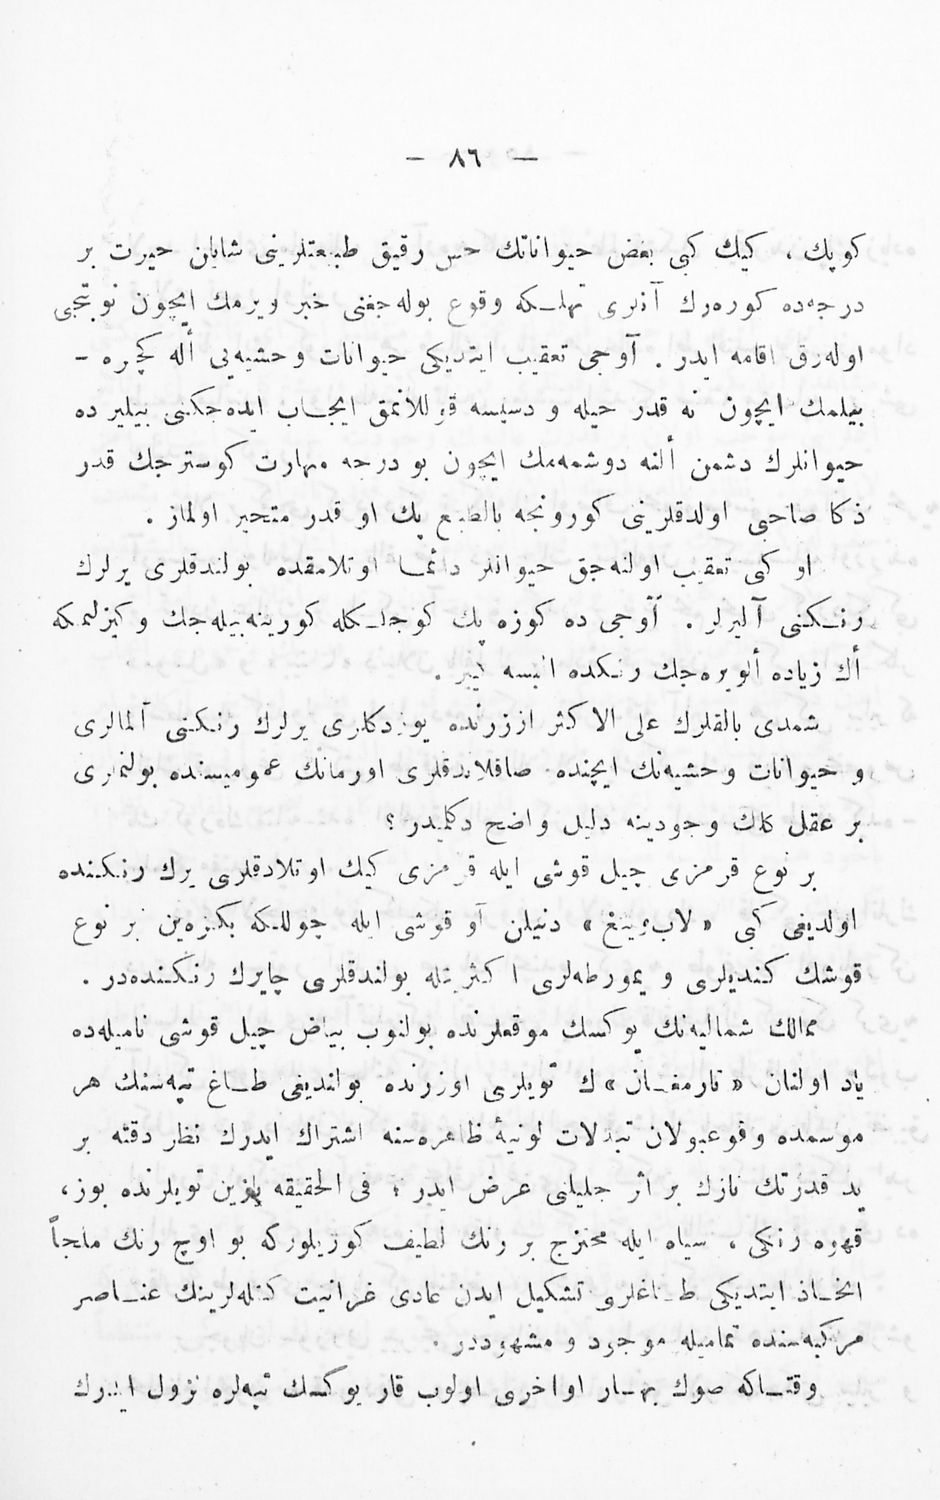 — ٨٦ —
كوپك ، كيك كبی بعض حيواناتك حس رقيق طبيعتلرينی شايان حيرت بر
درجه‌ده كوره‌رك آنلری تهلـكه وقوع بوله‌جغنی خبر ويرمك ايچون نوبتجی
اوله‌رق اقامه ايدر . آوجی تعقيب ايتديكی حيوانات وحشيه‌يی أله كچره -
بيلمك ايچون نه قدر حيله و دسيسه قوللانمق ايجـاب ايده‌جكنی بيلير ده
حيوانلرك دشمن ألنه دوشمه‌مك ايچون بو درجه مهارت كوسترجك قدر
ذكا صاحبی اولدقلرينی كورونجه بالطبـع پك او قدر متحير اولماز .
او كی تعقيب اولنه‌جق حيوانلر دائمـا اوتلامقده بولندقلری يرلرك
رنـكنی آليرلر . آوجی ده كوزه پك كوجلـكله كورينه‌بيله‌جك وكيزلنمكه
أك زياده ألويره‌جك رنـكده البسه كير .
شمدی بالقلرك علی الاكثر اوزرنده يوزدكلری يرلرك رنـكنی آلمالری
و حيوانات وحشيه‌نك ايچنده صاقلاندقلری اورمانك عموميسنده بولنملری
بر عقل كلك وجودينه دليل واضح دكلميدر ؟
بر نوع قرمزی چيل قوشی ايله قرمزی كيك اوتلادقلری يرك رنـكنده
اولديغی كبی « لاب‌وينغ » دنيلن آو قوشی ايله چوللـكه بكزه‌ين بر نوع
قوشك كنديلری و يمورطه‌لری اكثريتله بولندقلری چايرك رنـكنده‌در .
ممالك شماليه‌نك يوكسك موقعلرنده بولنوب بياض چيل قوشی ناميله‌ده
ياد اولنان « تارمغـان » ك تويلری اوزرنده بولنديغی طـاغ تپه‌سنك هر
موسمده وقوعبولان تبدلات لونيهٔ ظاهره‌سنه اشتراك ايدرك نظر دقته بر
يد قدرتك نازك بر اثر جليلنی عرض ايدر ؛ فی الحقيقه يازين تويلرنده بوز ،
قهوه رنكی ، سياه ايله ممتزج بر رنك لطيف كوريلوركه بو اوچ رنك ملجأ
اتخـاذ ايتديكی طـاغلری تشكيل ايدن عادی غرانيت كتله‌لرينك عنـاصر
مركبه‌سنده تماميله موجود و مشهوددر .
وقتـاكه صوك بهـار اواخری اولوب قار يوكسك تپه‌لره نزول ايدرك